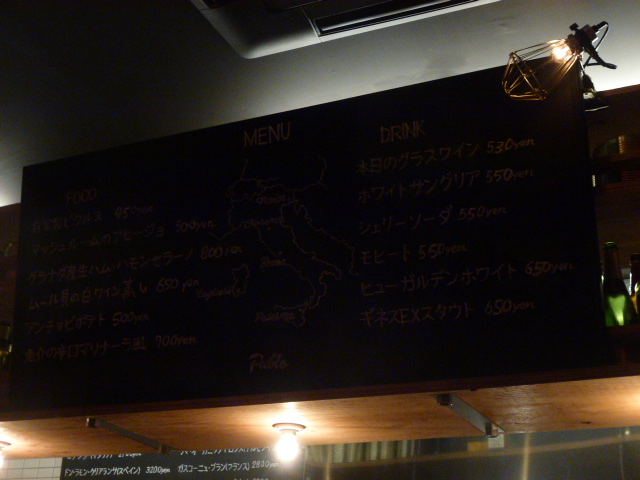 MENU
FOOD
自家製ピクルス 450yen
マッシュルームのアヒージョ 500yen
グラナダ産生ハム・ハモンセラーノ 800yen
ムール貝の白ワイン蒸し 650yen
アンチョビポテト 500yen
魚介の辛口マリナーラ風 700yen
DRINK
本日のグラスワイン 530yen
ホワイトサングリア 550yen
シェリーソーダ 550yen
モヒート 550yen
ヒューガルデンホワイト 650yen
ギネスEXスタウト 650yen
Pablo
ドン・ラモン・クリアランサ(スペイン) 3200yen
ガスコーニュ・ブラン(フランス) 2800yen